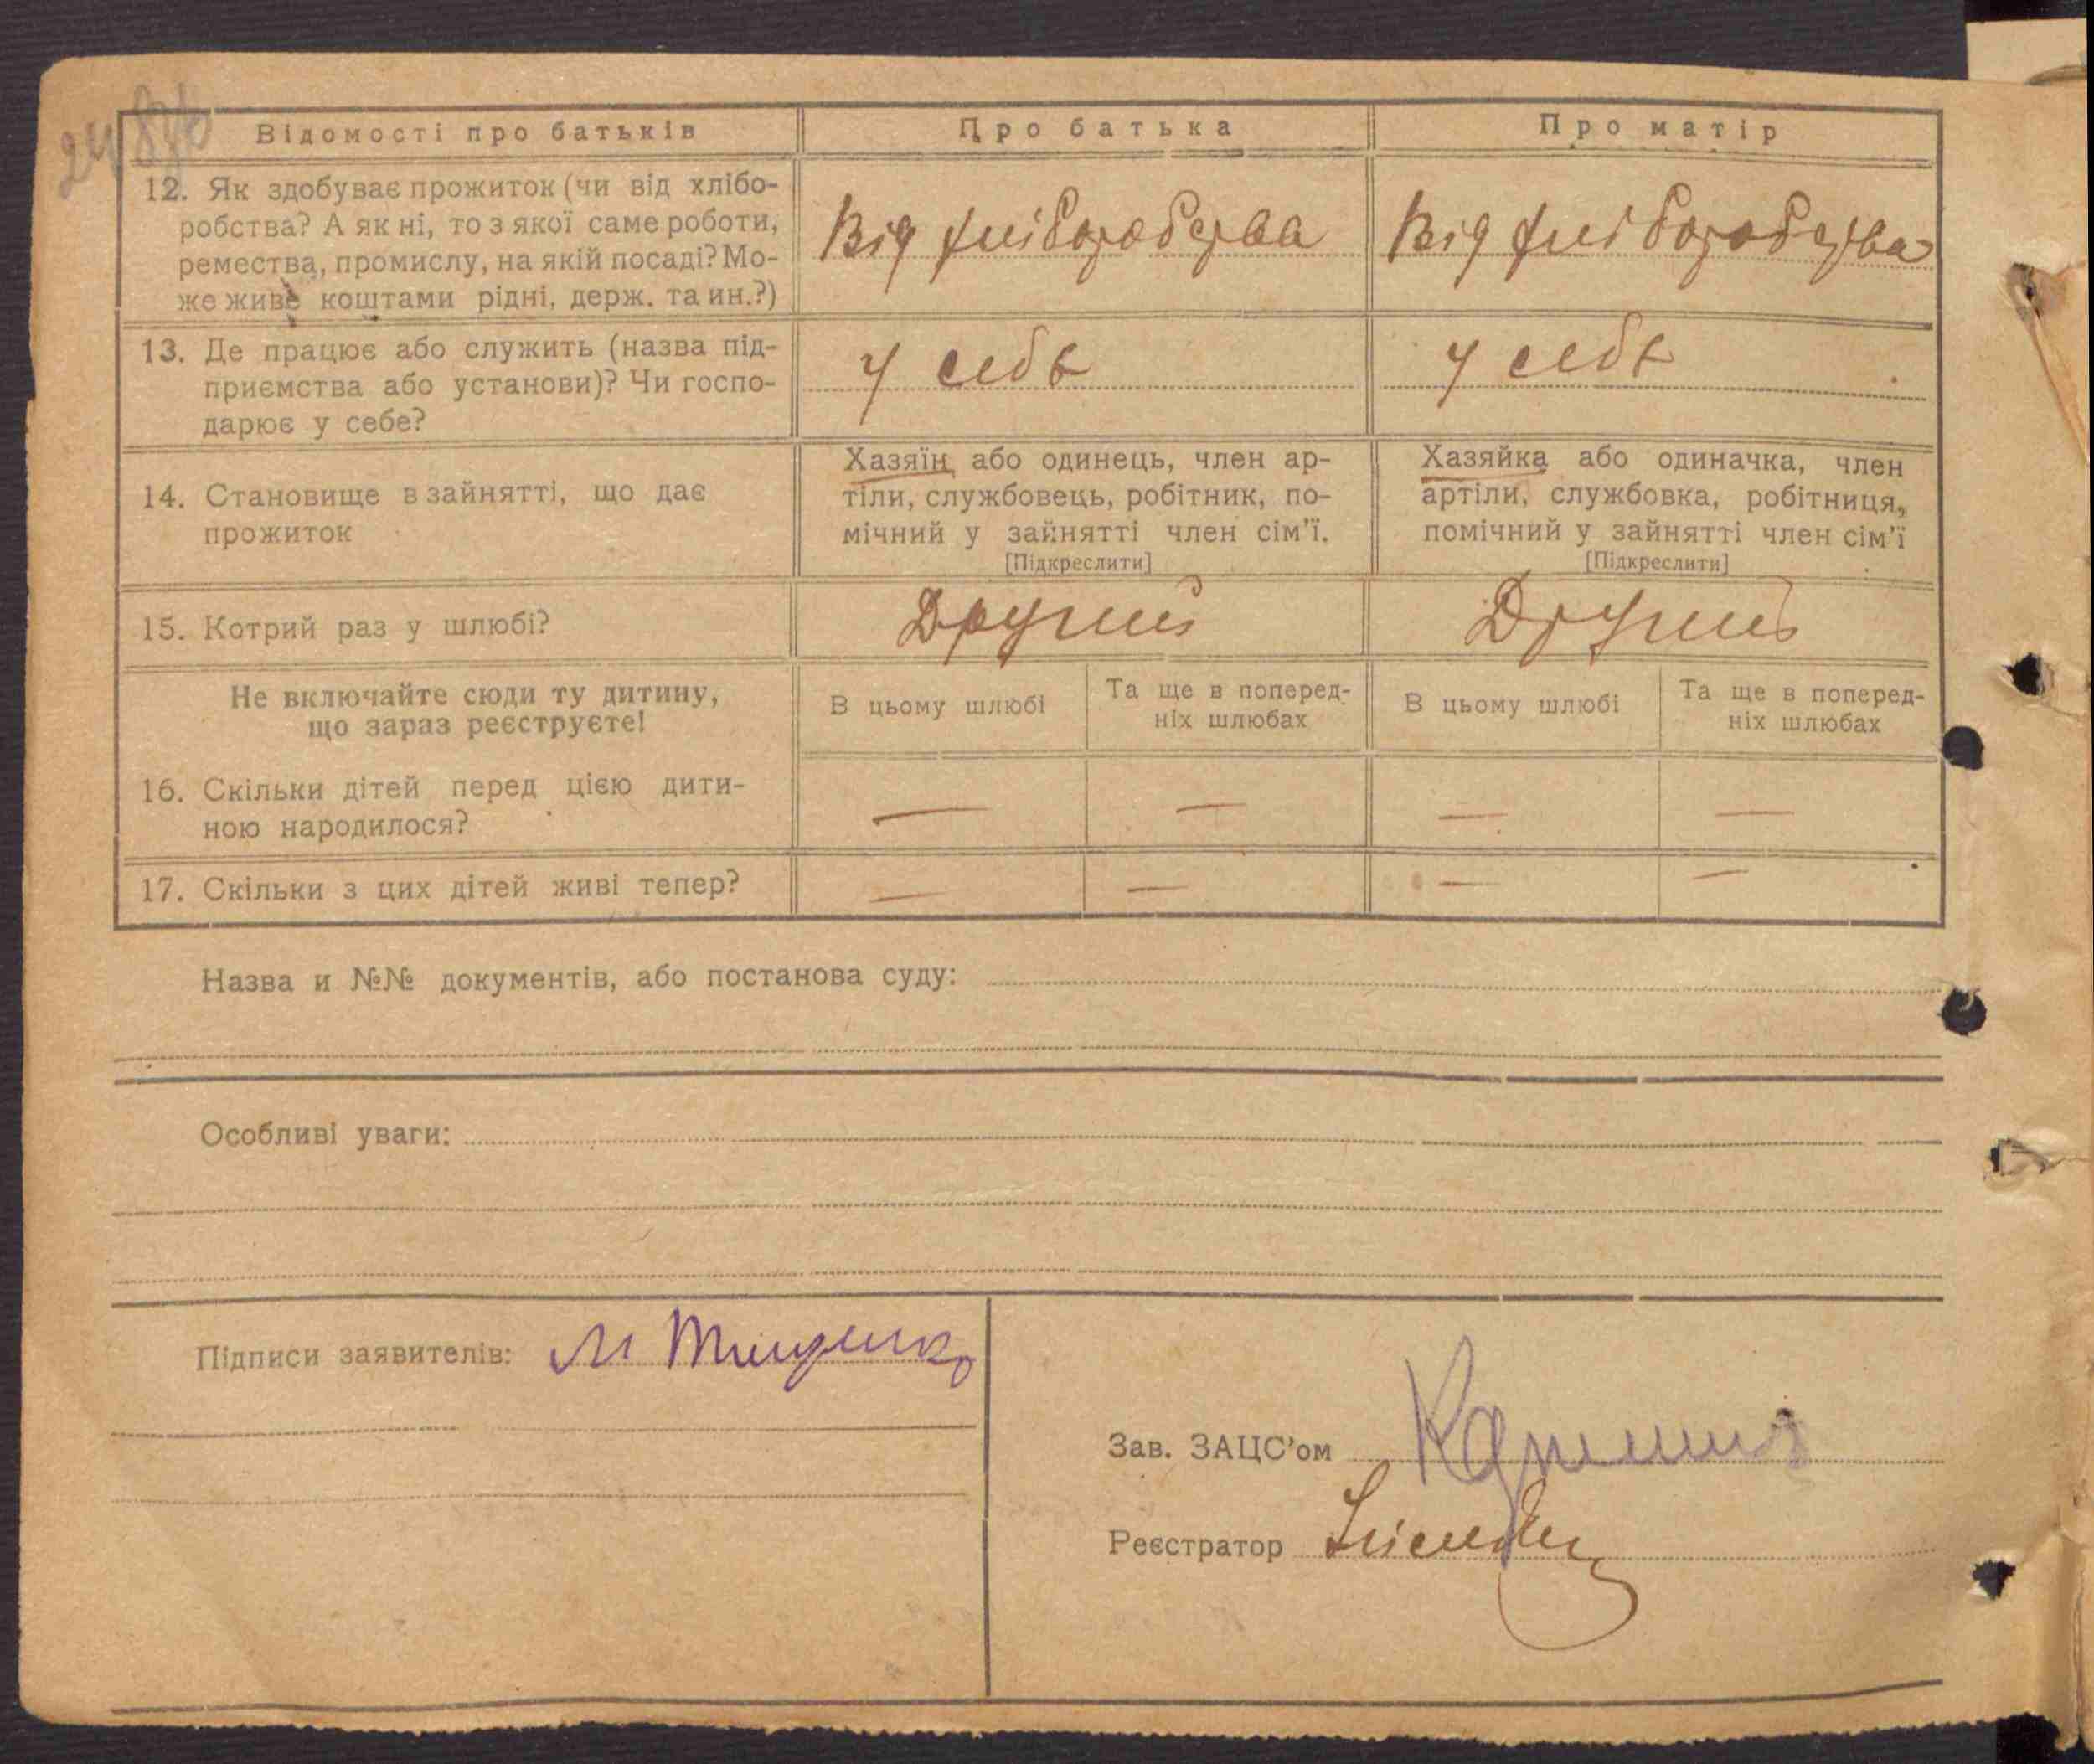 Відомості про батьків
Про батька
Про матір
12. Як здобуває прожиток (чи від хлібо-
робства? А як ні, то з якої саме роботи,
ремества, промислу, на якій посаді? Мо-
же живе коштами рідні, держ. та ин.?)
Від хліборобства
Від хліборобства
13. Де працює або служить (назва під-
приємства або установи)? Чи госпо-
дарює у себе?
у себе
у себе
14. Становище в зайнятті, що дає
прожиток
Хазяїн або одинець, член ар-
тіли, службовець, робітник, по-
мічний у зайнятті член сім'ї.
[Підкреслити]
Хазяйка або одиначка, член
артіли, службовка, робітниця,
помічний у зайнятті член сім'ї
[Підкреслити]
15. Котрий раз у шлюбі?
Другий
Другий
Не включайте сюди ту дитину,
що зараз реєструєте!
В цьому шлюбі
Та ще в поперед-
ніх шлюбах
В цьому шлюбі
Та ще в поперед-
ніх шлюбах
16. Скільки дітей перед цією дити-
ною народилося?
— — — —
17. Скільки з цих дітей живі тепер?
— — — —
Назва и №№ документів, або постанова суду:
Особливі уваги:
Підписи заявителів: М Тищенко
Зав. ЗАЦС'ом
Реєстратор